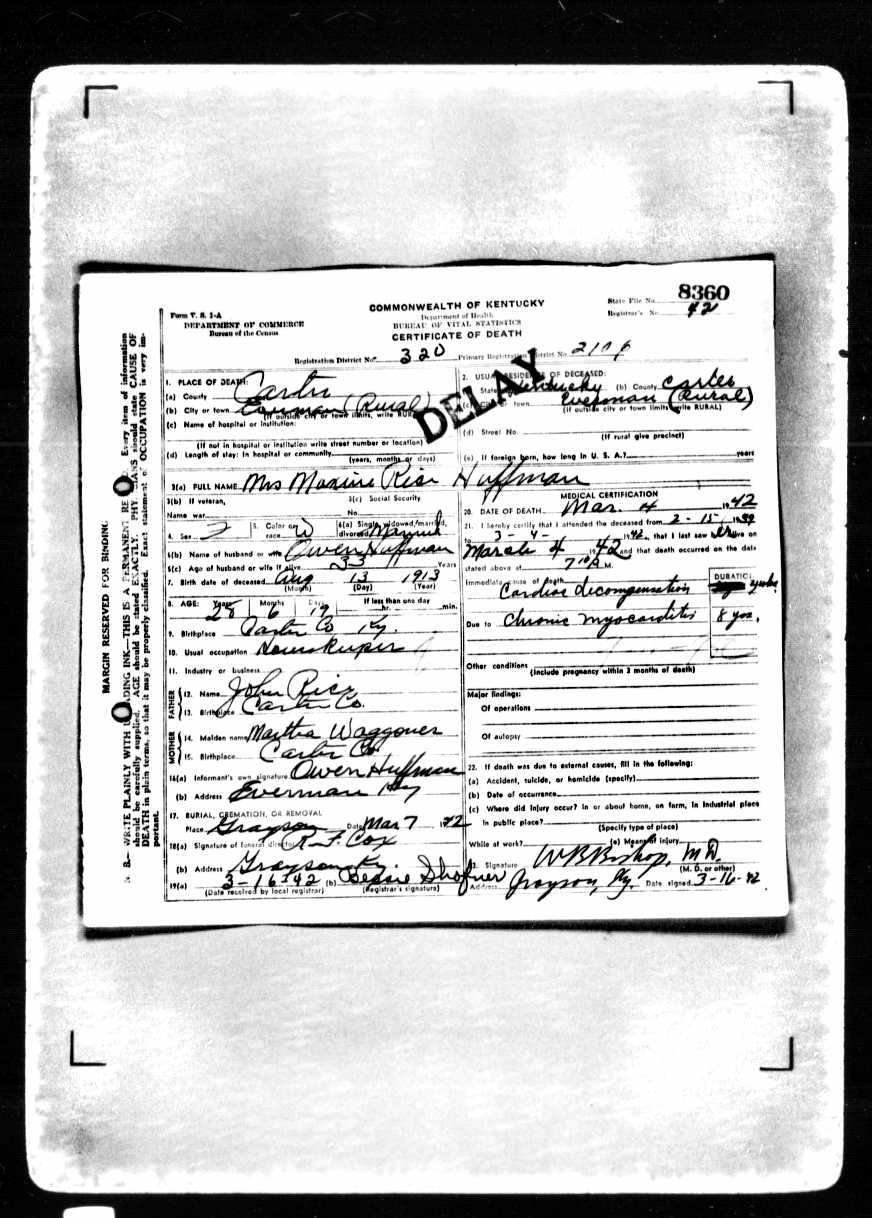 8360
State File No.
Form V. S. 1-A
COMMONWEALTH OF KENTUCKY
DEPARTMENT OF COMMERCE
Department of Health
Registrar's No. 42
Bureau of the Census
BUREAU OF VITAL STATISTICS
CERTIFICATE OF DEATH
Registration District No. 320 Primary Registration District No. 2106
DELAY
MARGIN RESERVED FOR BINDING
N. B.— WRITE PLAINLY WITH UNFADING INK—THIS IS A PERMANENT RECORD. Every item of information
should be carefully supplied. AGE should be stated EXACTLY. PHYSICIANS should state CAUSE OF
DEATH in plain terms, so that it may be properly classified. Exact statement of OCCUPATION is very im-
portant.
1. PLACE OF DEATH:
(a) County Carter
(b) City or town Everman (Rural)
(If outside city or town limits, write RURAL)
(c) Name of hospital or institution:
(If not in hospital or institution write street number or location)
(d) Length of stay: In hospital or community
(years, months or days)
2. USUAL RESIDENCE OF DECEASED:
State Kentucky (b) County Carter
(c) City or town Everman (Rural)
(If outside city or town limits, write RURAL)
(d) Street No.
(If rural give precinct)
(e) If foreign born, how long in U. S. A.? years
3(a) FULL NAME Mrs Maxine Rice Huffman
3(b) If veteran,
Name war
3(c) Social Security
No.
4. Sex F 5. Color or race W 6(a) Single, widowed, married, divorced Married
6(b) Name of husband or wife Owen Huffman
6(c) Age of husband or wife if alive 33 Years
7. Birth date of deceased Aug 13 1913
(Month) (Day) (Year)
8. AGE: Years 28 Months 6 Days 19 If less than one day hr. min.
9. Birthplace Carter Co Ky.
10. Usual occupation Housekeeper
11. Industry or business
FATHER
12. Name John Rice
13. Birthplace Carter Co.
MOTHER
14. Maiden name Martha Waggoner
15. Birthplace Carter Co
16(a) Informant's own signature Owen Huffman
(b) Address Everman Ky
17. BURIAL, CREMATION, OR REMOVAL
Place Grayson Date Mar 7 1942
18(a) Signature of funeral director R. F. Cox
(b) Address Grayson Ky.
19(a) 3-16-42 (b) Bessie Shofner
(Date received by local registrar) (Registrar's signature)
MEDICAL CERTIFICATION
20. DATE OF DEATH Mar. 4 1942
21. I hereby certify that I attended the deceased from 2-15, 19
to 3-4- 1942, that I last saw her alive on
March 4 1942 and that death occurred on the date
stated above at 7 10 M.
Immediate cause of death DURATION
Cardiac decompensation
Due to Chronic myocarditis 8 yrs.
Other conditions
(Include pregnancy within 3 months of death)
Major findings:
Of operations
Of autopsy
22. If death was due to external causes, fill in the following:
(a) Accident, suicide, or homicide (specify)
(b) Date of occurrence
(c) Where did injury occur? In or about home, on farm, in industrial place
in public place?
(Specify type of place)
While at work? (e) Means of injury
23. Signature W B Bishop, M D.
(M. D. or other)
Address Grayson, Ky. Date signed 3-16-42